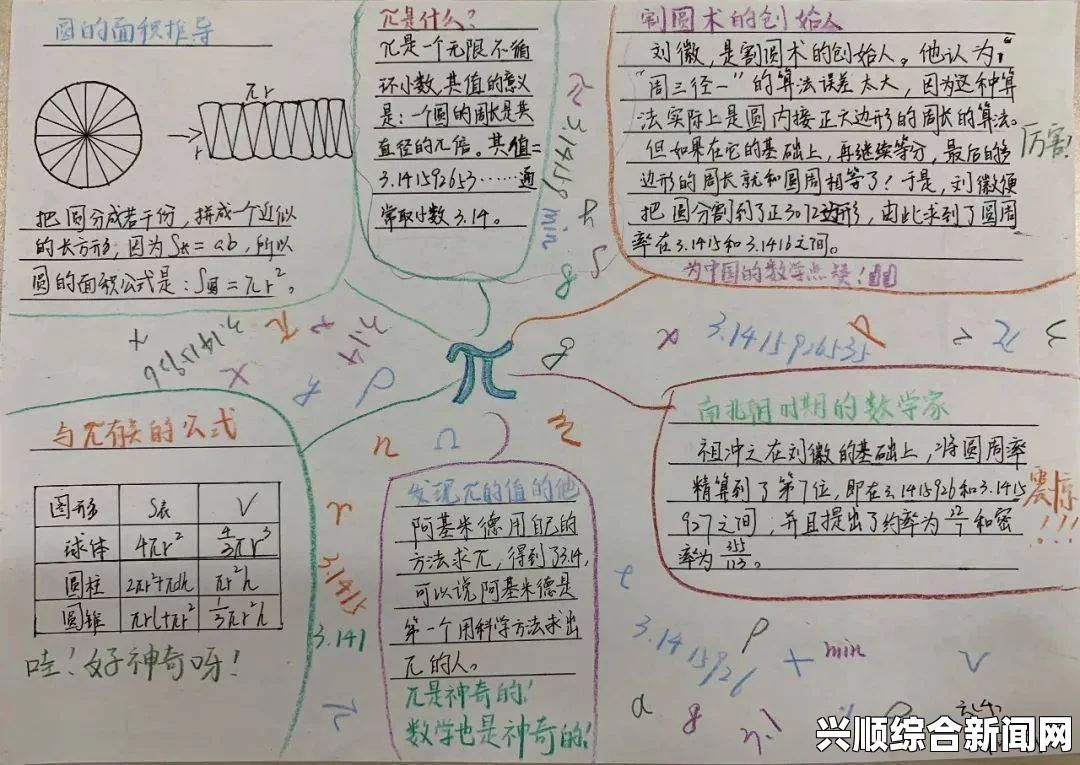 圆的面积推导
πr
r
把圆分成若干份，拼成一个近似
的长方形；因为S长=ab，所以
圆的面积公式是：S圆=πr²。
π是什么？
π是一个无限不循
环小数，其值的意义
是：一个圆的周长是其
直径的π倍。其值=
3.141592653……通
常取小数3.14。
割圆术的创始人
刘徽，是割圆术的创始人。他认为
“周三径一”的算法误差太大，因为这种算
法实际上是圆内接正六边形的周长的算法。
但如果在它的基础上，再继续等分，最后的多
边形的周长就和圆周相等了！于是，刘徽便
把圆分割到了正3072边形，由此求到了圆周
率在3.1415和3.1416之间。
厉害！
为中国的数学点赞！
π 3.14159 min
π
3.1415926535
与π有关的公式
图形 S表 V
球体 4πr² 4/3πr³
圆柱 2πr²+πdh πr²h
圆锥 πrl+πr² 1/3πr²h
哇！好神奇呀！
3.1415
3.141
π
发现π的值的他
阿基米德用自己的
方法求π，得到了3.14，
可以说阿基米德是
第一个用科学方法求出
π的人。
π是神奇的！
数学也是神奇的！
南北朝时期的数学家
祖冲之在刘徽的基础上，将圆周率
精算到了第7位，即在3.1415926和3.1415
927之间，并且提出了约率为22/7和密
率为355/113。
震惊!!!
3.1415926
+ min
V
兴顺综合新闻网